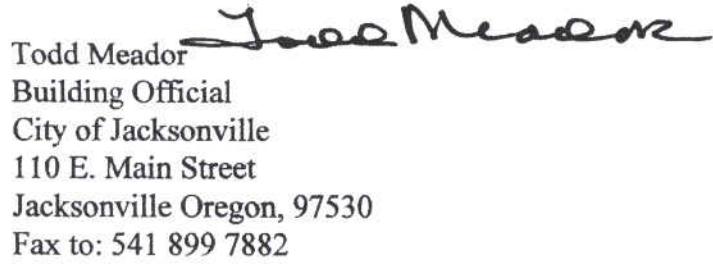 Todd Meador Todd Meador
Building Official
City of Jacksonville
110 E. Main Street
Jacksonville Oregon, 97530
Fax to: 541 899 7882